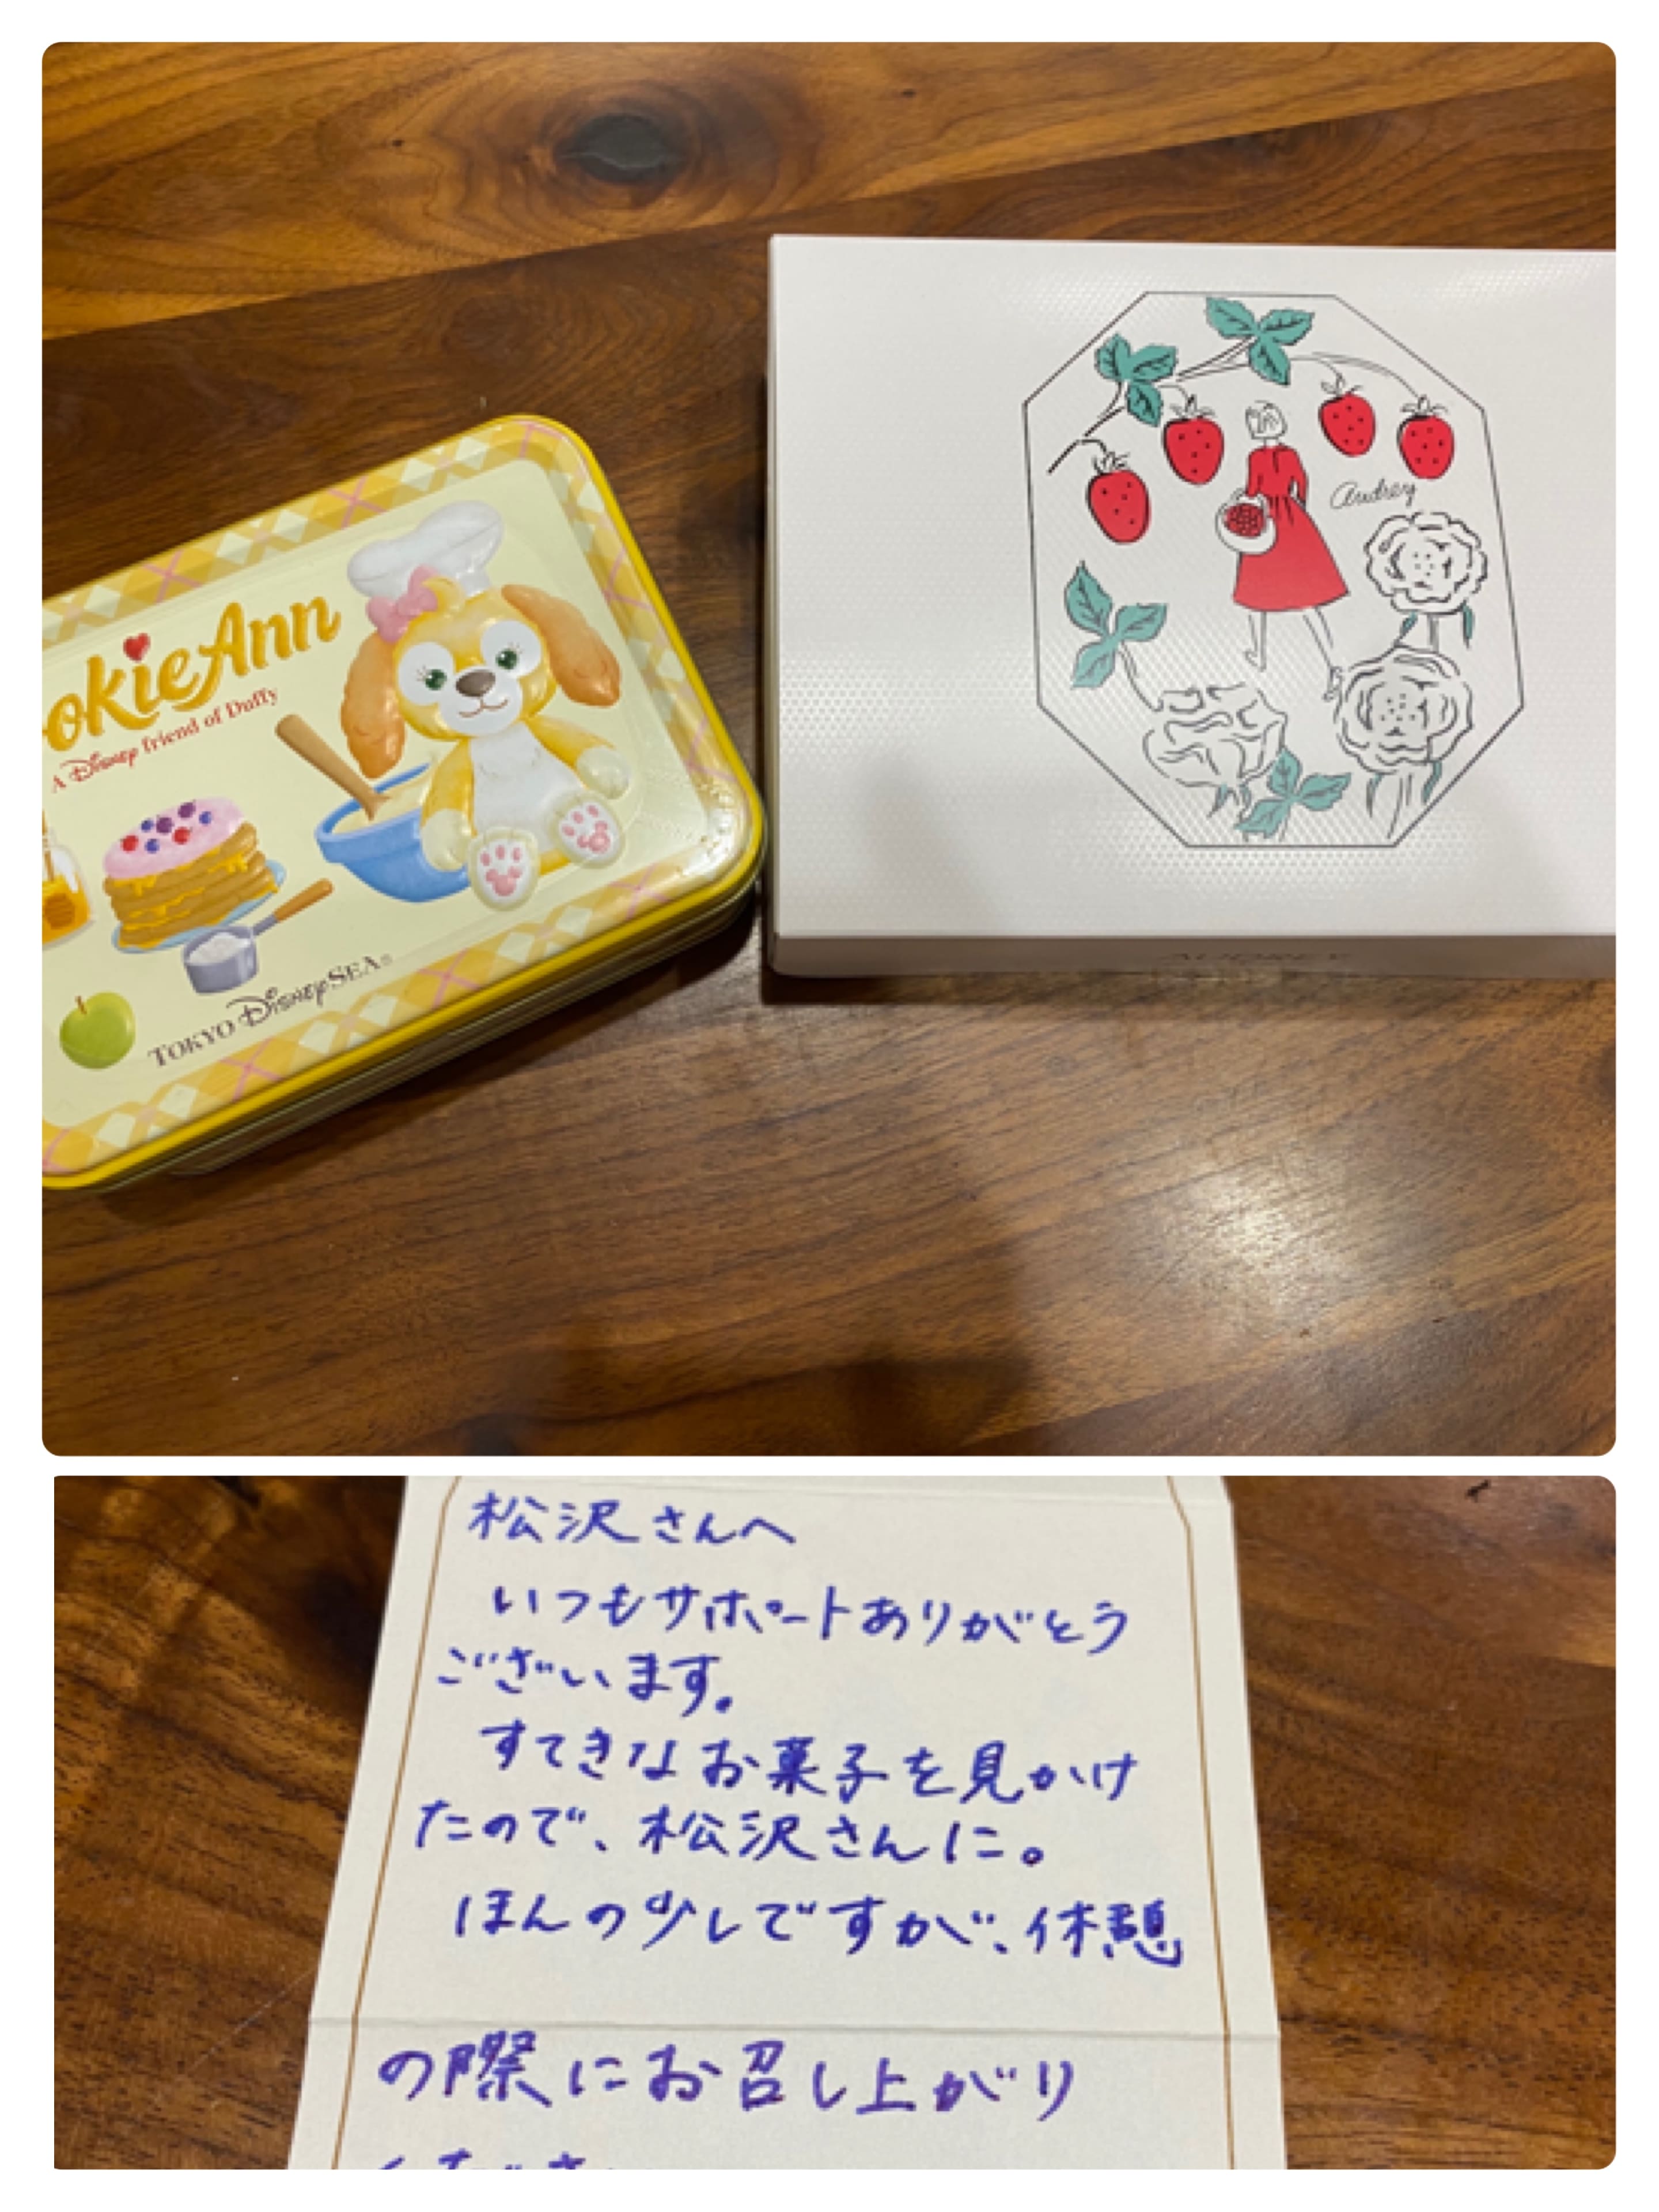 okieAnn
A Disney friend of Duffy
TOKYO DISNEYSEA®
Audrey
AUDREY
松沢さんへ
いつもサポートありがとう
ございます。
すてきなお菓子を見かけ
たので、松沢さんに。
ほんの少しですが、休憩
の際にお召し上がり
ください